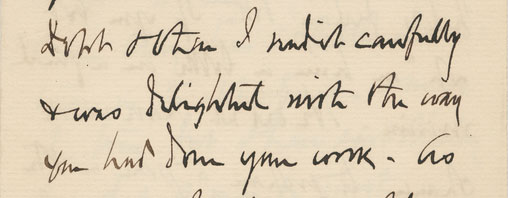 then I read it carefully
& was delighted with the way
you had done your work - As